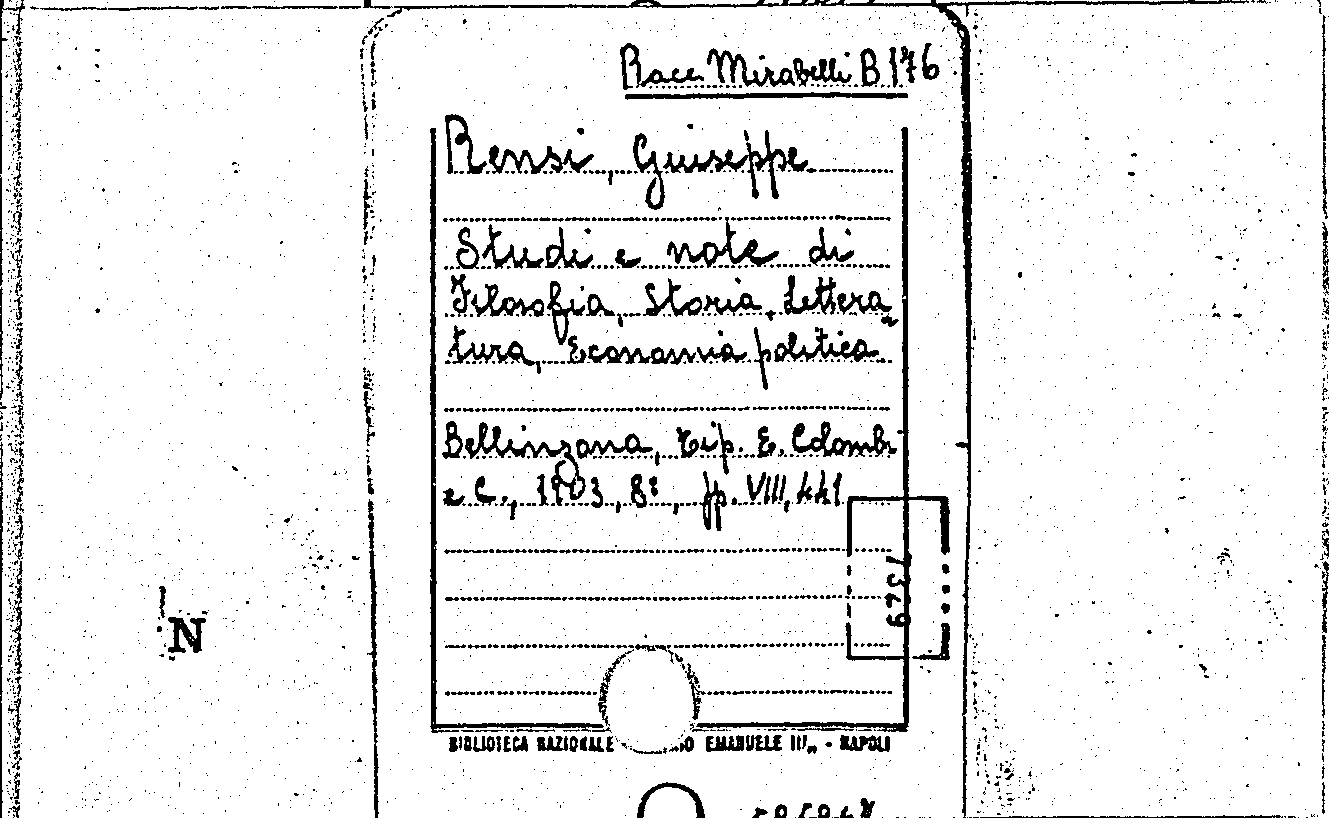 Racc. Mirabelli B 176
Rensi, Giuseppe
Studi e note di
Filosofia, Storia, Lettera-
tura, Economia politica
Bellinzona, Tip. E. Colombi
e C., 1903, 8º, pp. VIII, 441
7329
N
BIBLIOTECA NAZIONALE EMANUELE III„ - NAPOLI